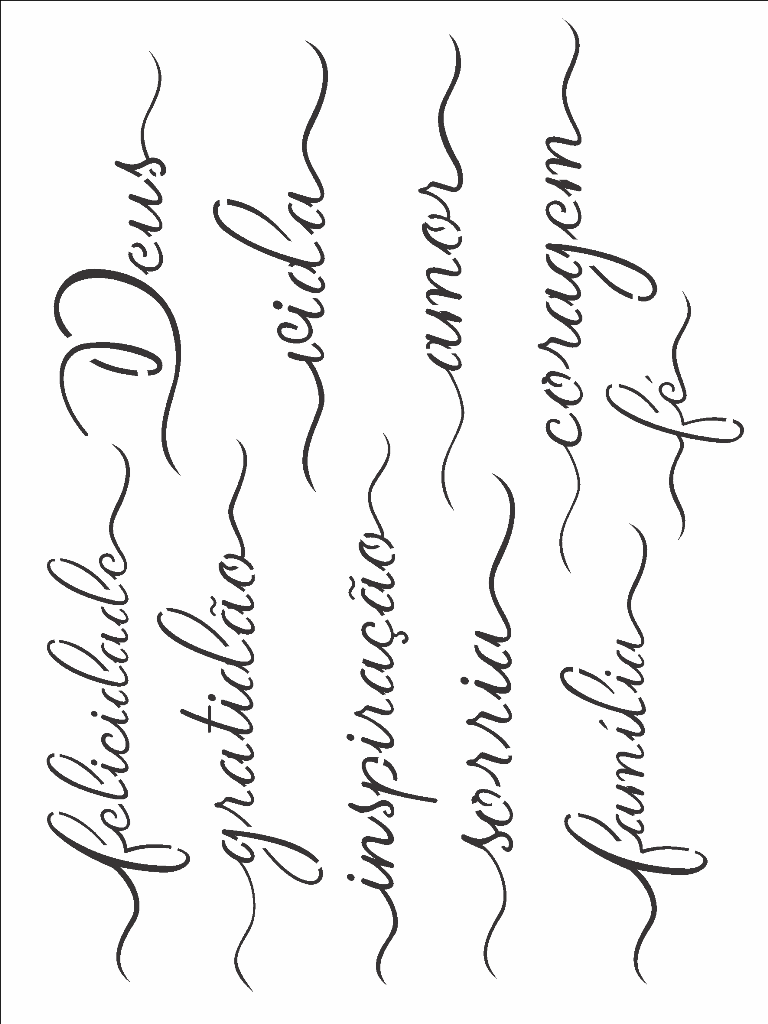 felicidade Deus
gratidão vida
inspiração amor
sorria coragem
família fé